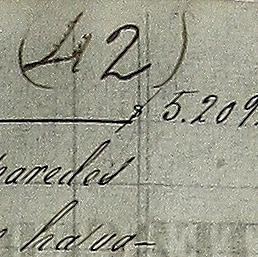 (42)
$ 5.209
paredes
hava-